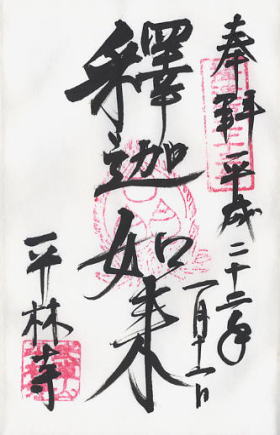 奉拝 平成二十二年
一月十一日
釋迦如来
平林寺